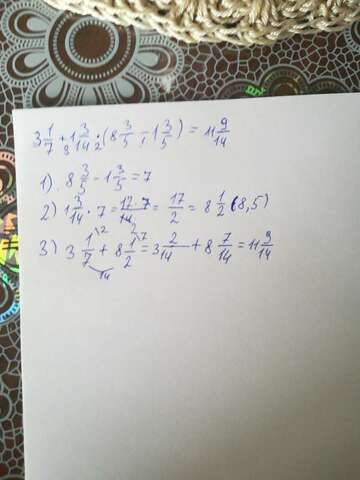 3 1/7 + 1 3/14 · (8 3/5 - 1 3/5) = 11 9/14
3 2 1
1). 8 3/5 - 1 3/5 = 7
2) 1 3/14 · 7 = 17·7/14 = 17/2 = 8 1/2 (8,5)
2
3) 3 1/7 \2 + 8 1/2 \7 = 3 2/14 + 8 7/14 = 11 9/14
14